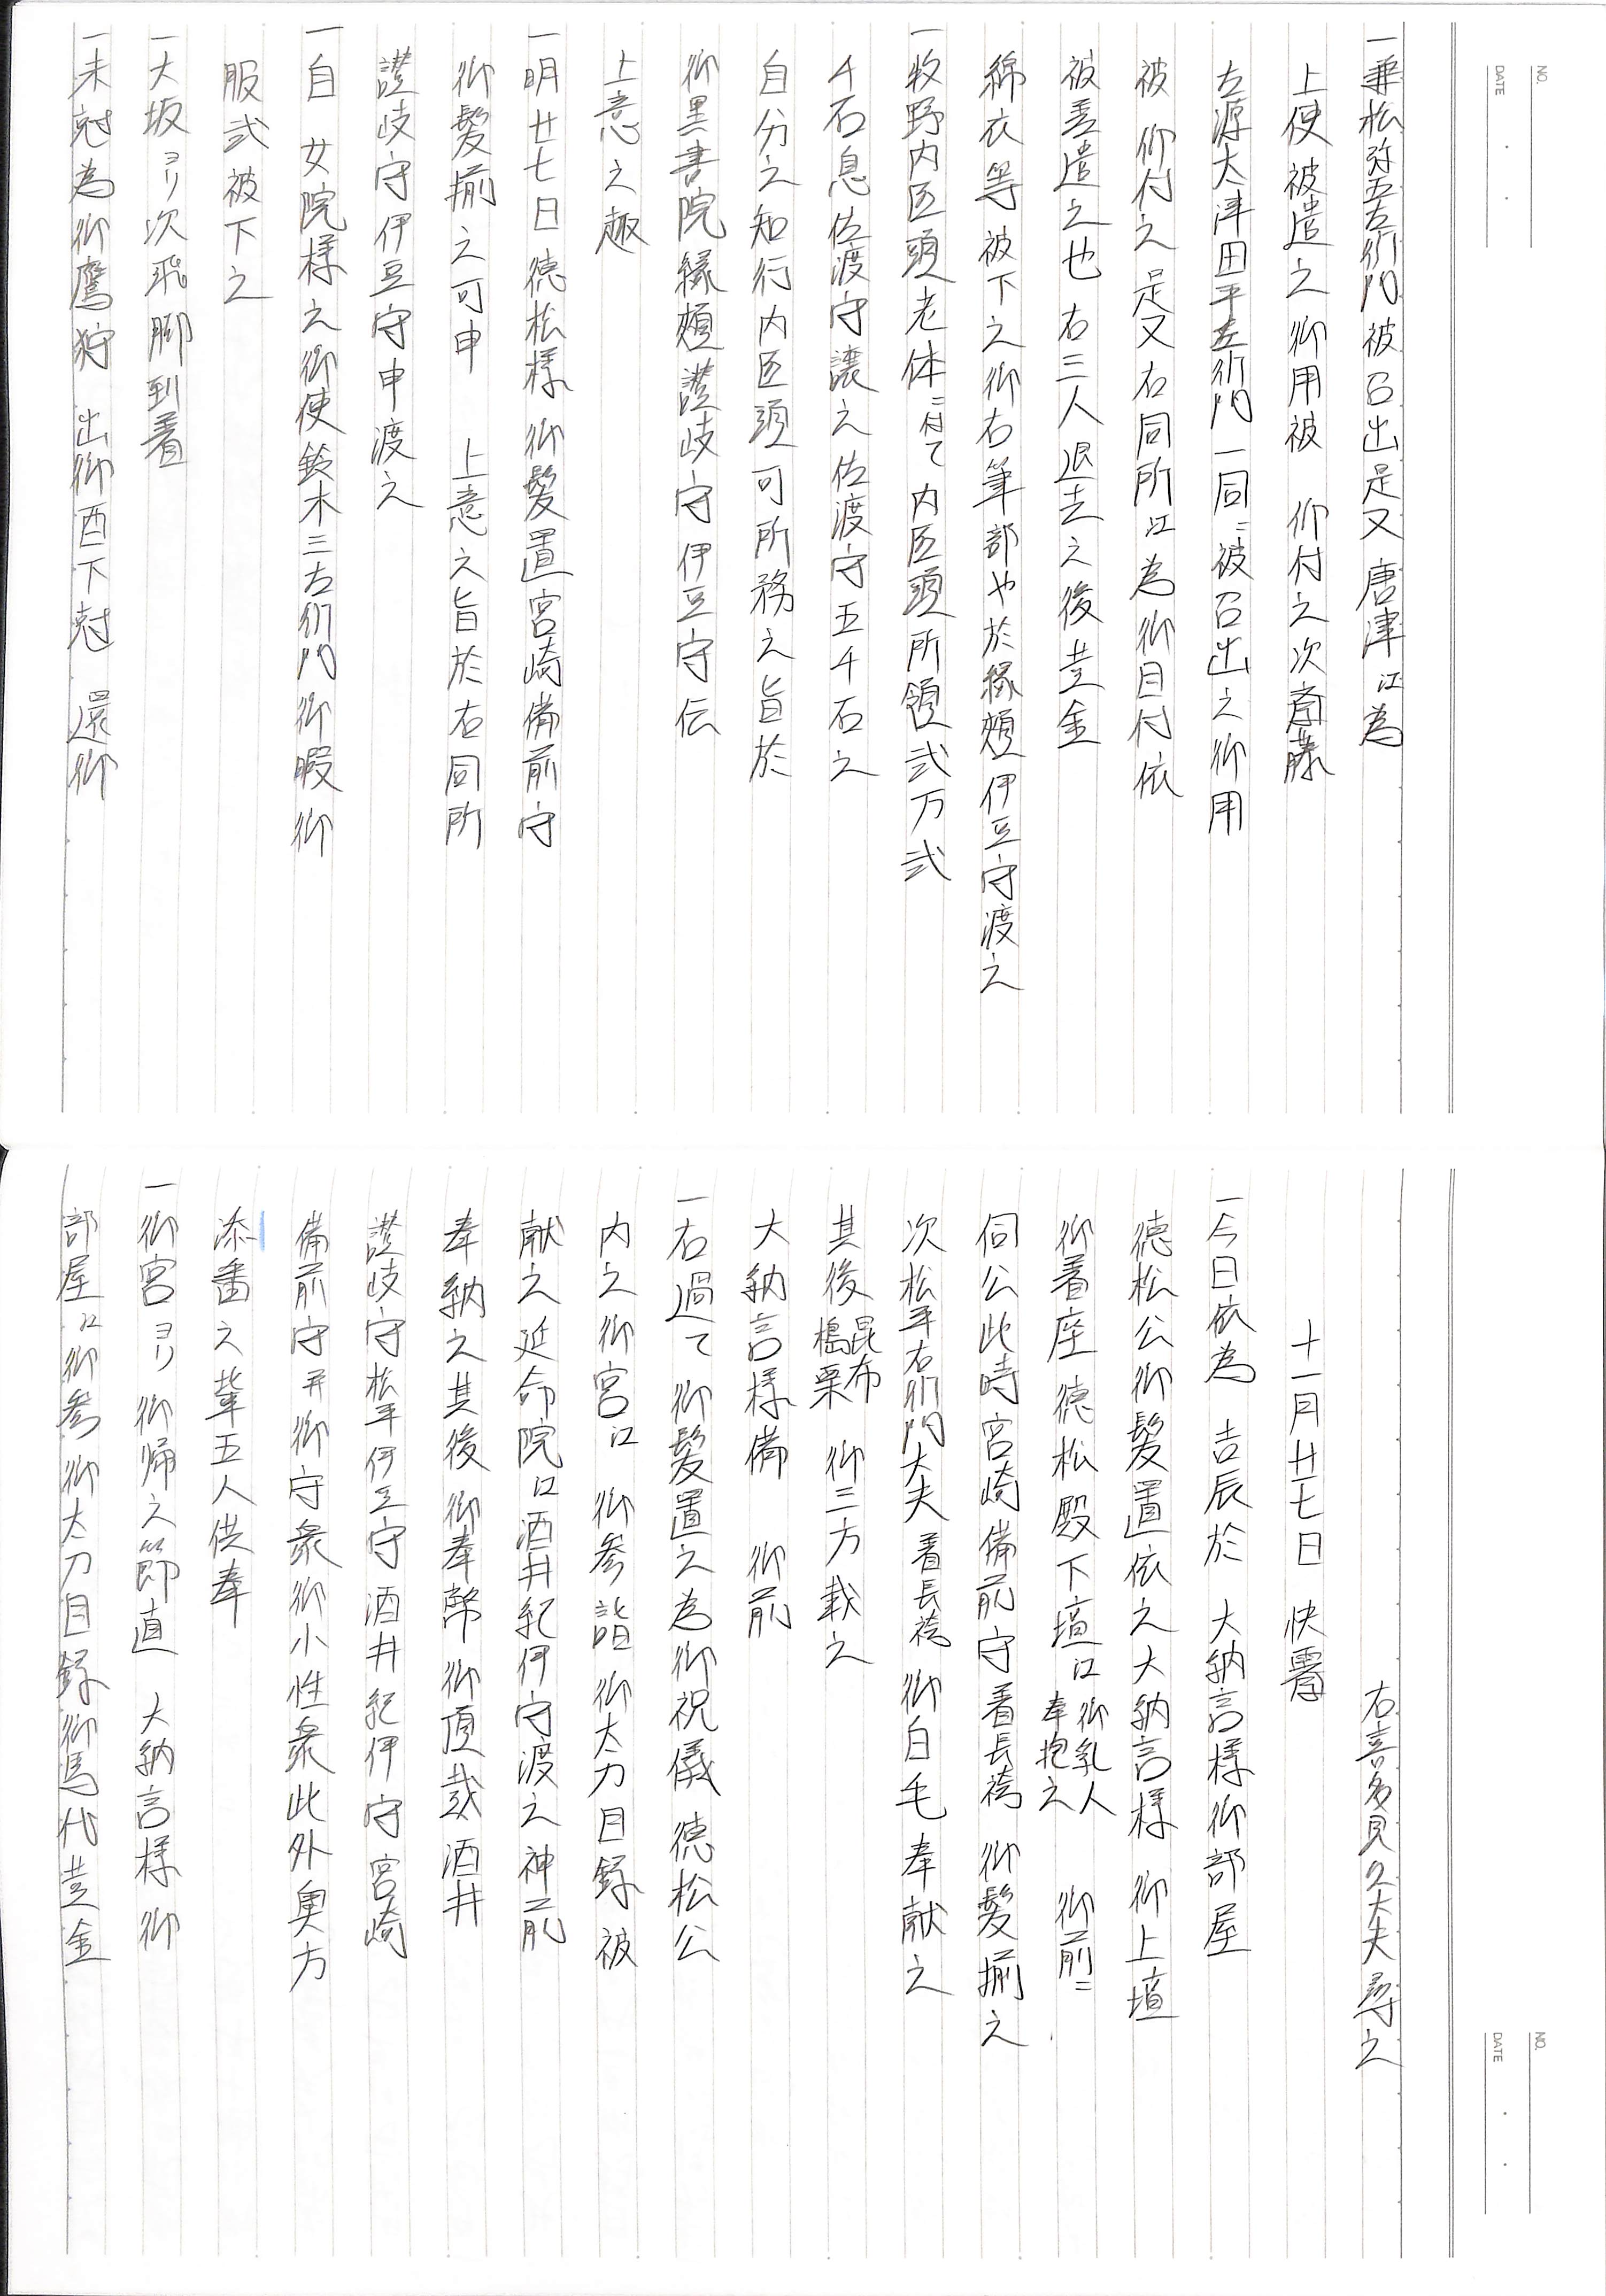 一兼松弥五左衛門被召出是又 唐津江為
上使被遣之御用被 仰付之次斎藤
左源太津田平左衛門一同ニ被召出之御用
被 仰付之是又右同所江為御目付依
被差遣之也右三人退去之後黄金
綿衣等被下之御右筆部や於縁頬伊豆守渡之
一牧野内匠頭老体ニ付て内匠頭所領弐万弐
千石息佐渡守譲之佐渡守五千石之
自分之知行内匠頭可所務之旨於
御黒書院縁頬讃岐守伊豆守伝
上意之趣
一明廿七日徳松様御髪置宮崎備前守
御髪揃之可申 上意之旨於右同所
讃岐守伊豆守申渡之
一自 女院様之御使鈴木三左衛門御暇御
服弐被下之
一大坂ヨリ次飛脚到着
一未刻為御鷹狩 出御酉下刻 還御
NO.
DATE
右喜多見久大夫尋之
十一月廿七日 快霽
一今日依為 吉辰於 大納言様御部屋
徳松公御髪置依之大納言様 御上壇
御着座徳松殿下壇江御乳人奉抱之 御前ニ
伺公此時宮崎備前守着長袴 御髪揃之
次松平右衛門大夫着長袴御白毛奉献之
其後昆布搗栗 御三方載之
大納言様備 御前
一右過て御髪置之為御祝儀徳松公
内之御宮江 御参詣御太刀目録被
献之延命院江酒井紀伊守渡之神前
奉納之其後御奉幣御頂戴酒井
讃岐守松平伊豆守酒井紀伊守宮崎
備前守并御守衆御小性衆此外奥方
添番之輩五人供奉
一御宮ヨリ御帰之節直 大納言様御
部屋江御参御太刀目録御馬代黄金
NO.
DATE